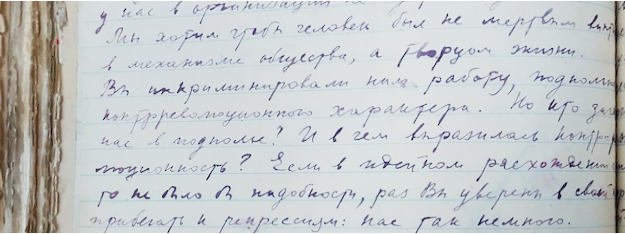 у нас в организации
Мы хотим чтобы человек был не мертвым винти
в механизме общества, а творцом жизни.
Вы инкриминировали нам работу, подпольно
контрреволюционного характера. Но кто заг
нас в подполье? И в чем выразилась контррев
люционность? Если в идейном расхождении
то не было бы надобности, раз Вы уверены в свой
прибегать к репрессиям: нас так немного.